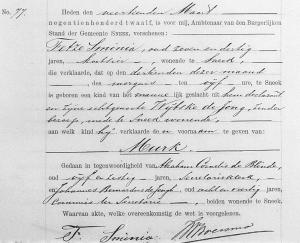 No. 77.
Heden den veertienden Maart
negentienhonderd twaalf, is voor mij, Ambtenaar van den Burgerlijken
Stand der Gemeente SNEEK, verschenen:
Fetze Sminia, oud zeven en dertig
jaren, koetsier, wonende te Sneek,
die verklaarde, dat op den dertienden dezer maand
des morgens ten vijf ure, te Sneek
is geboren een kind van het geslacht uit hem declarant
en zijne echtgenoote Wytske de Jong, zonder
beroep, mede te Sneek wonende,
aan welk kind hij verklaarde te geven van:
Murk.
Gedaan in tegenwoordigheid van Abraham Cornelis de
oud vijf en zestig jaren,
en Johannes Bernardus de Jongh, oud acht en veertig jaren,
commies ter Secretarie, beiden wonende te Sneek.
Waarvan akte, welke overeenkomstig de wet is voorgelezen.
F. Sminia